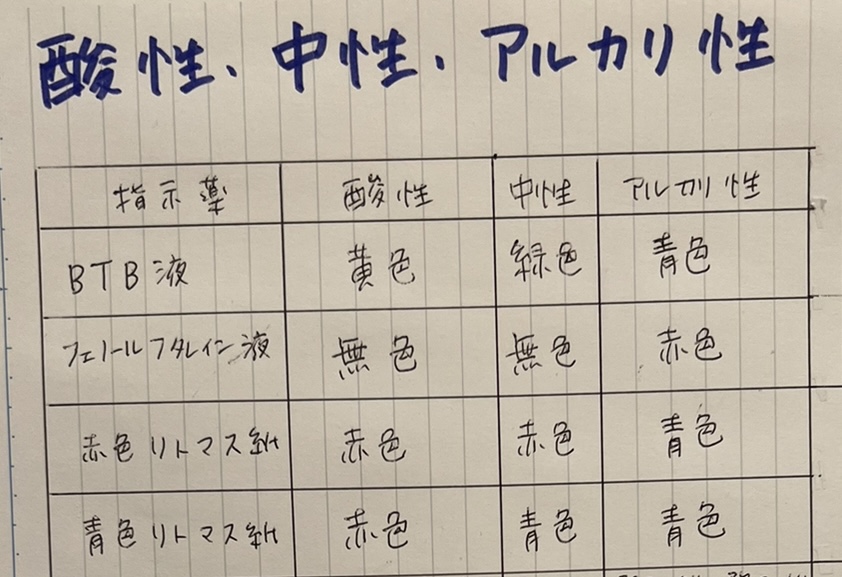 酸性、中性、アルカリ性
指示薬 酸性 中性 アルカリ性
BTB液 黄色 緑色 青色
フェノールフタレイン液 無色 無色 赤色
赤色リトマス紙 赤色 赤色 青色
青色リトマス紙 赤色 青色 青色